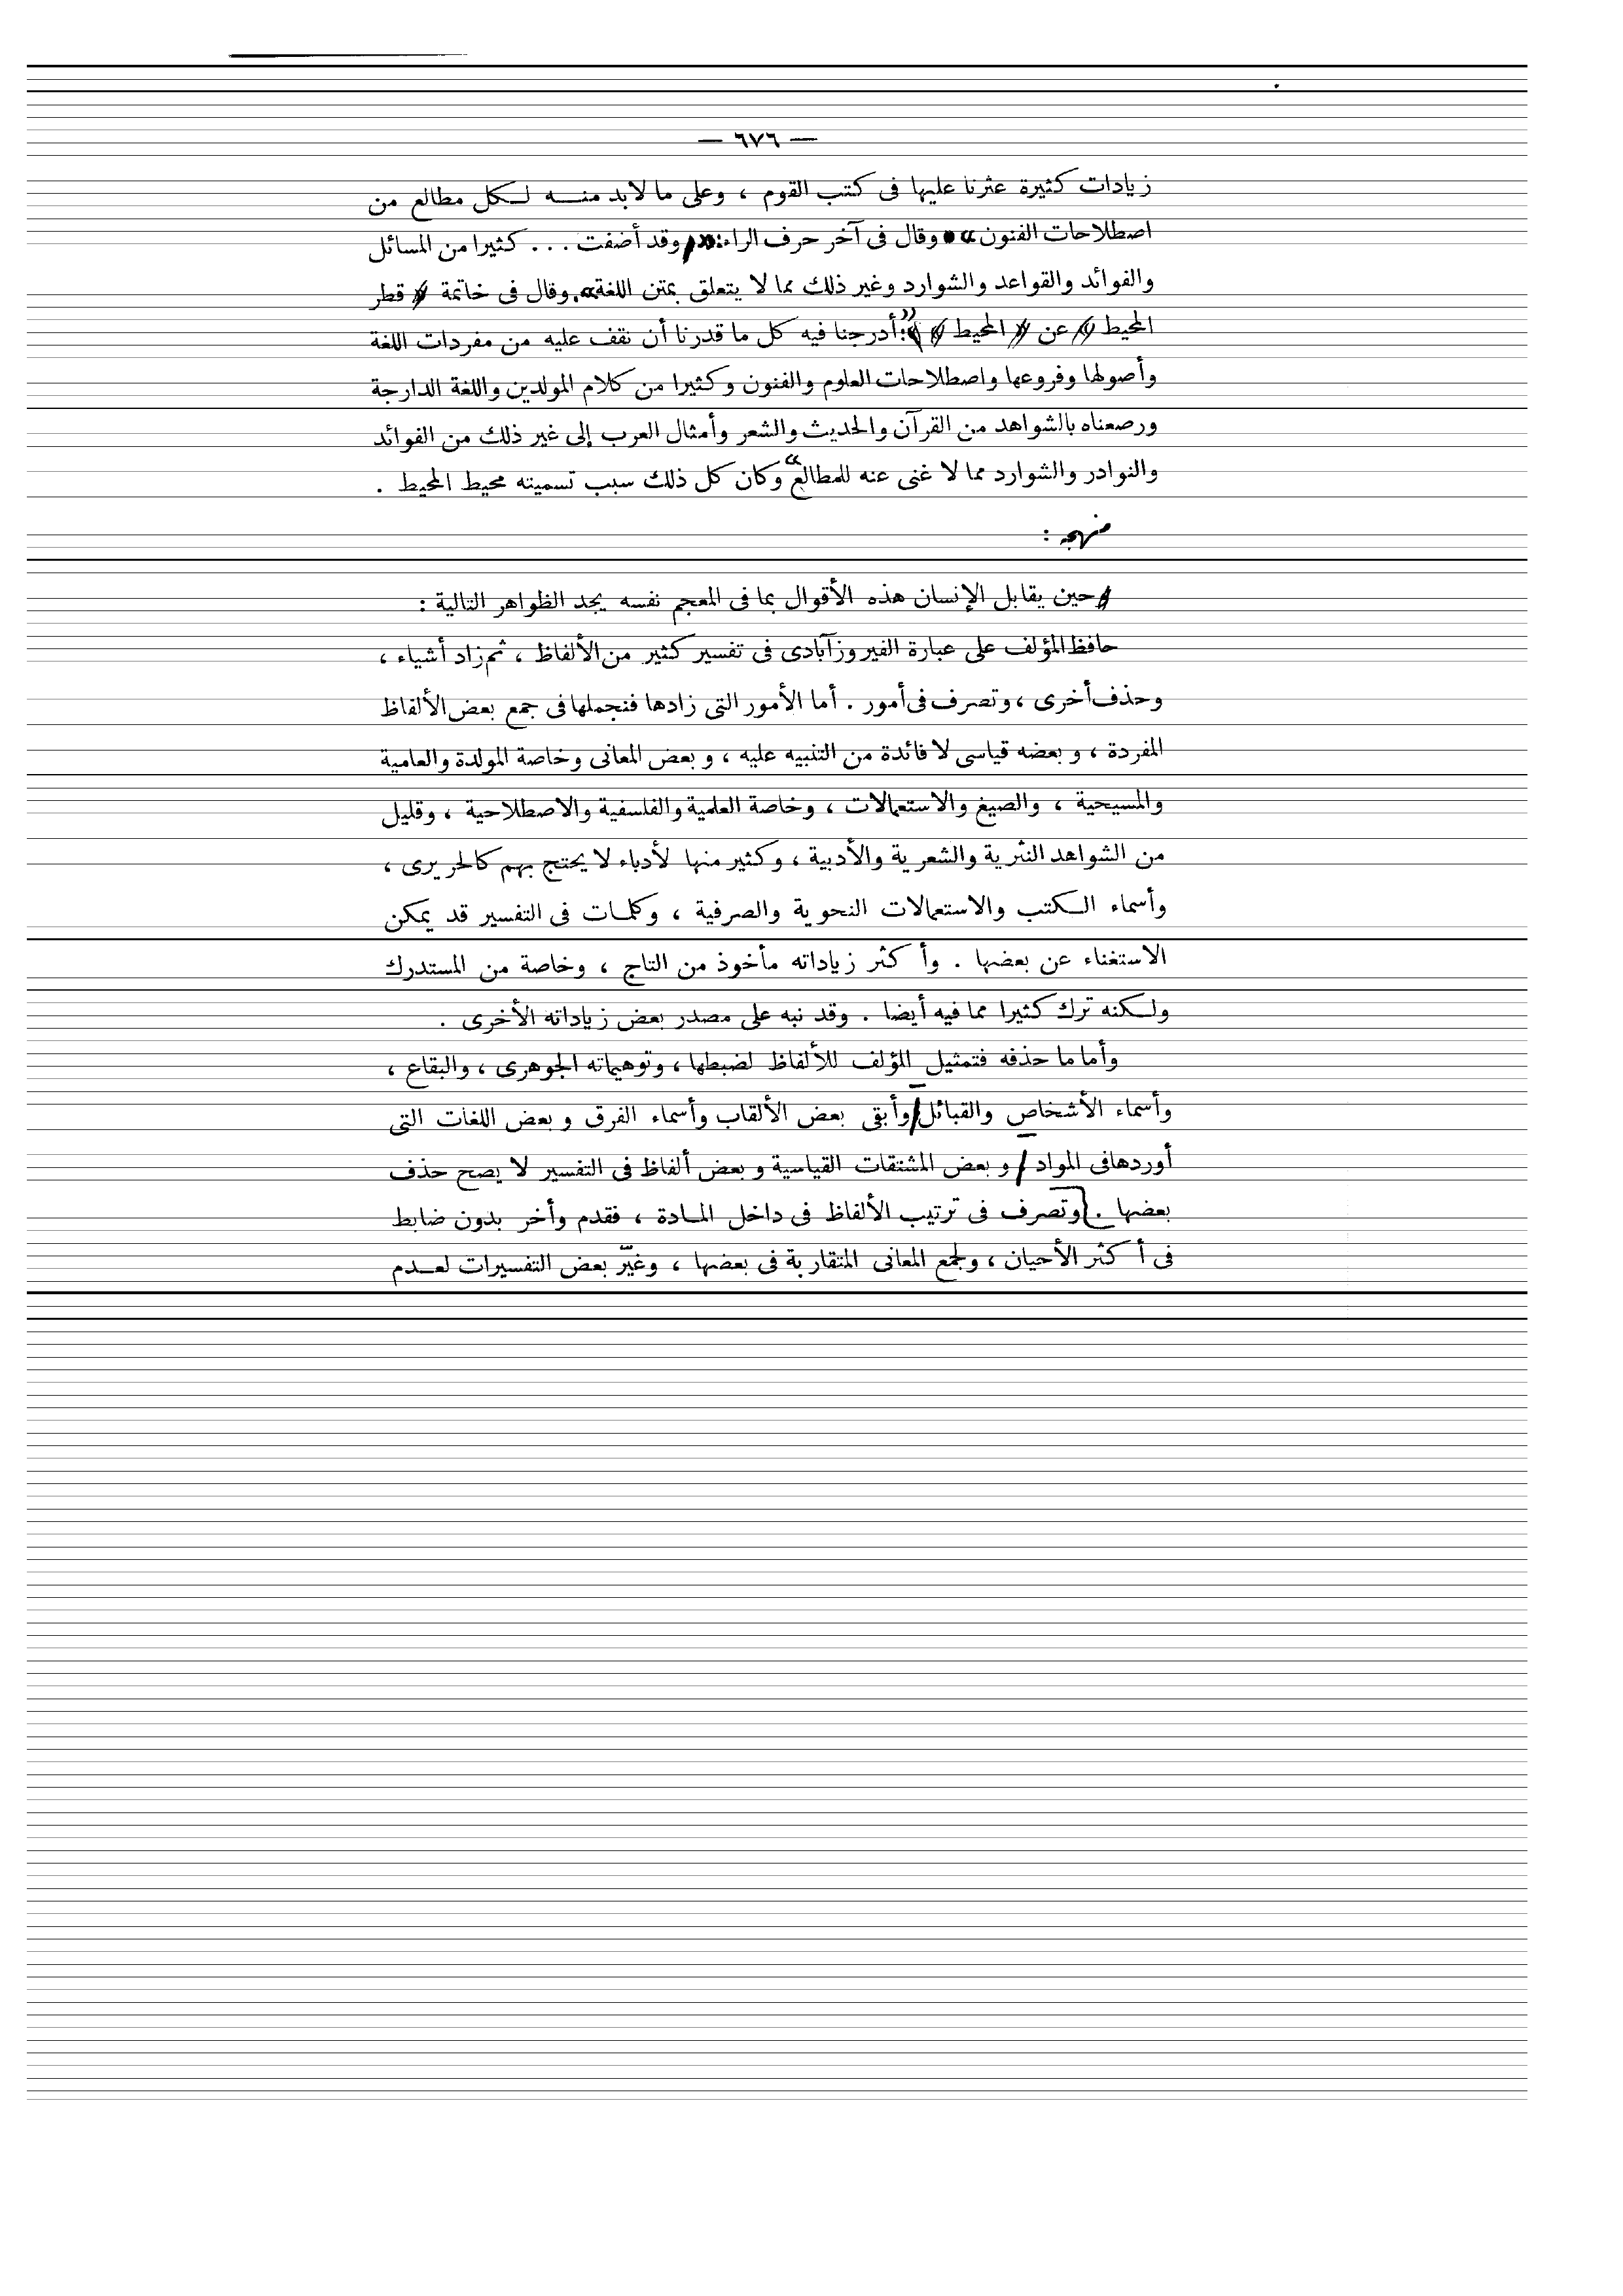 — ٦٧٦ —
زيادات كثيرة عثرنا عليها فى كتب القوم ، وعلى ما لابد منه لكل مطالع من
اصطلاحات الفنون » وقال فى آخر حرف الراء : « وقد أضفت ... كثيرا من المسائل
والفوائد والقواعد والشوارد وغير ذلك مما لا يتعلق بمتن اللغة » . وقال فى خاتمة قطر
المحيط عن المحيط : « أدرجنا فيه كل ما قدرنا أن نقف عليه من مفردات اللغة
وأصولها وفروعها واصطلاحات العلوم والفنون وكثيرا من كلام المولدين واللغة الدارجة
ورصعناه بالشواهد من القرآن والحديث والشعر وأمثال العرب إلى غير ذلك من الفوائد
والنوادر والشوارد مما لا غنى عنه للمطالع » وكان كل ذلك سبب تسميته محيط المحيط .
منهجه :
حين يقابل الإنسان هذه الأقوال بما فى المعجم نفسه يجد الظواهر التالية :
حافظ المؤلف على عبارة الفيروزآبادى فى تفسير كثير من الألفاظ ، ثم زاد أشياء ،
وحذف أخرى ، وتصرف فى أمور . أما الأمور التى زادها فنجملها فى جمع بعض الألفاظ
المفردة ، وبعضه قياسى لا فائدة من التنبيه عليه ، وبعض المعانى وخاصة المولدة والعامية
والمسيحية ، والصيغ والاستعمالات ، وخاصة العلمية والفلسفية والاصطلاحية ، وقليل
من الشواهد النثرية والشعرية والأدبية ، وكثير منها لأدباء لا يحتج بهم كالحريرى ،
وأسماء الكتب والاستعمالات النحوية والصرفية ، وكلمات فى التفسير قد يمكن
الاستغناء عن بعضها . وأكثر زياداته مأخوذ من التاج ، وخاصة من المستدرك
ولكنه ترك كثيرا مما فيه أيضا . وقد نبه على مصدر بعض زياداته الأخرى .
وأما ما حذفه فتمثيل المؤلف للألفاظ لضبطها ، وتوهيماته الجوهرى ، والبقاع ،
وأسماء الأشخاص والقبائل وأبقى بعض الألقاب وأسماء الفرق وبعض اللغات التى
أوردها فى المواد وبعض المشتقات القياسية وبعض ألفاظ فى التفسير لا يصح حذف
بعضها . وتصرف فى ترتيب الألفاظ فى داخل المادة ، فقدم وأخر بدون ضابط
فى أكثر الأحيان ، ولجمع المعانى المتقاربة فى بعضها ، وغيّر بعض التفسيرات لعدم